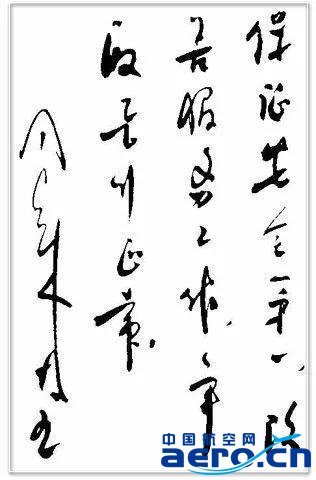 保证安全第一、改
善服务工作、争
取飞行正常。
周恩来
中国航空网
aero.cn